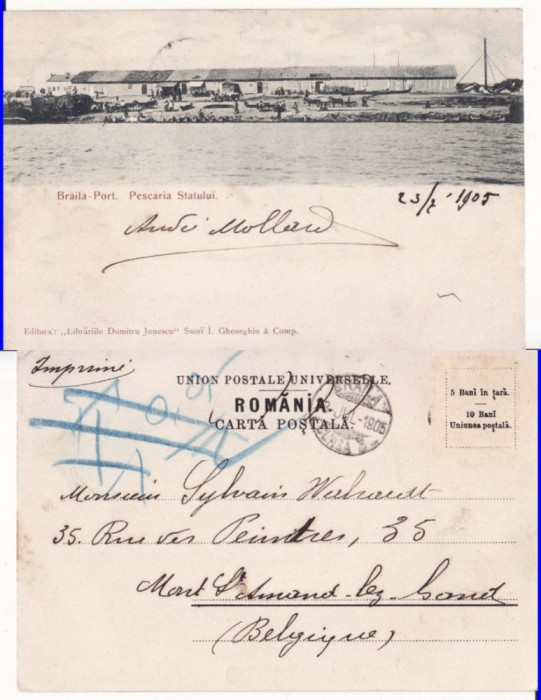 Brăila-Port. Pescăria Statului.
23/7 1905
André Mollard
Editura: „Librăriile Dumitru Jonescu" Ssorĭ Ĭ. Gheorghiu & Comp.
Imprimé
UNION POSTALE UNIVERSELLE.
ROMÂNIA
CARTĂ POȘTALĂ.
5 Banĭ în țară.
10 Banĭ
Uniunea poștală.
JUL 1905
Monsieur Sylvain
35. Rue des Peintres, 35
Mont St Amand-lez-Gand
(Belgique)